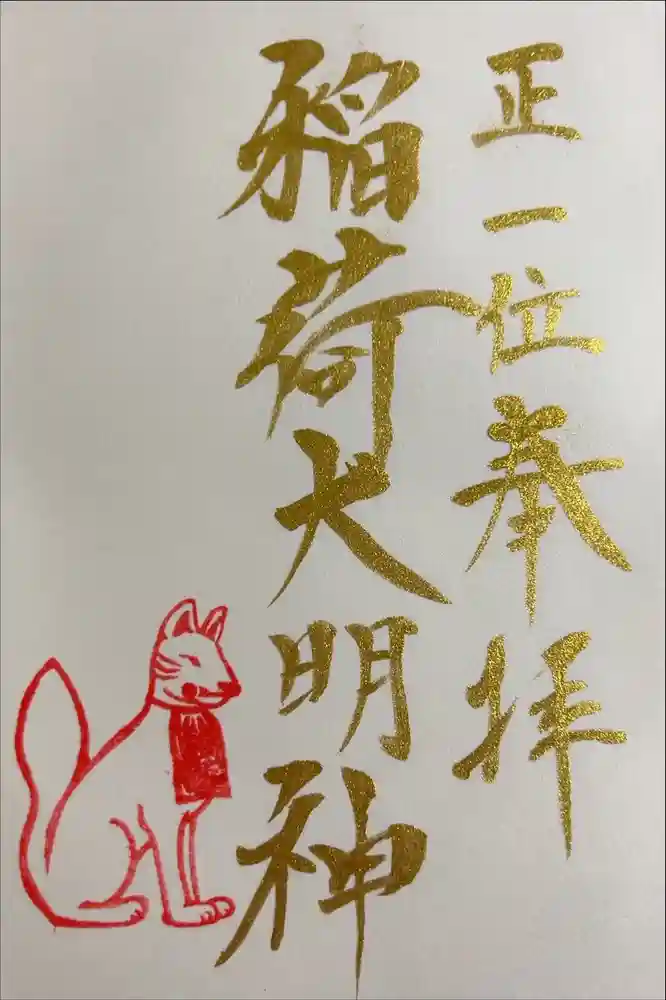 正一位奉拝
稲荷大明神